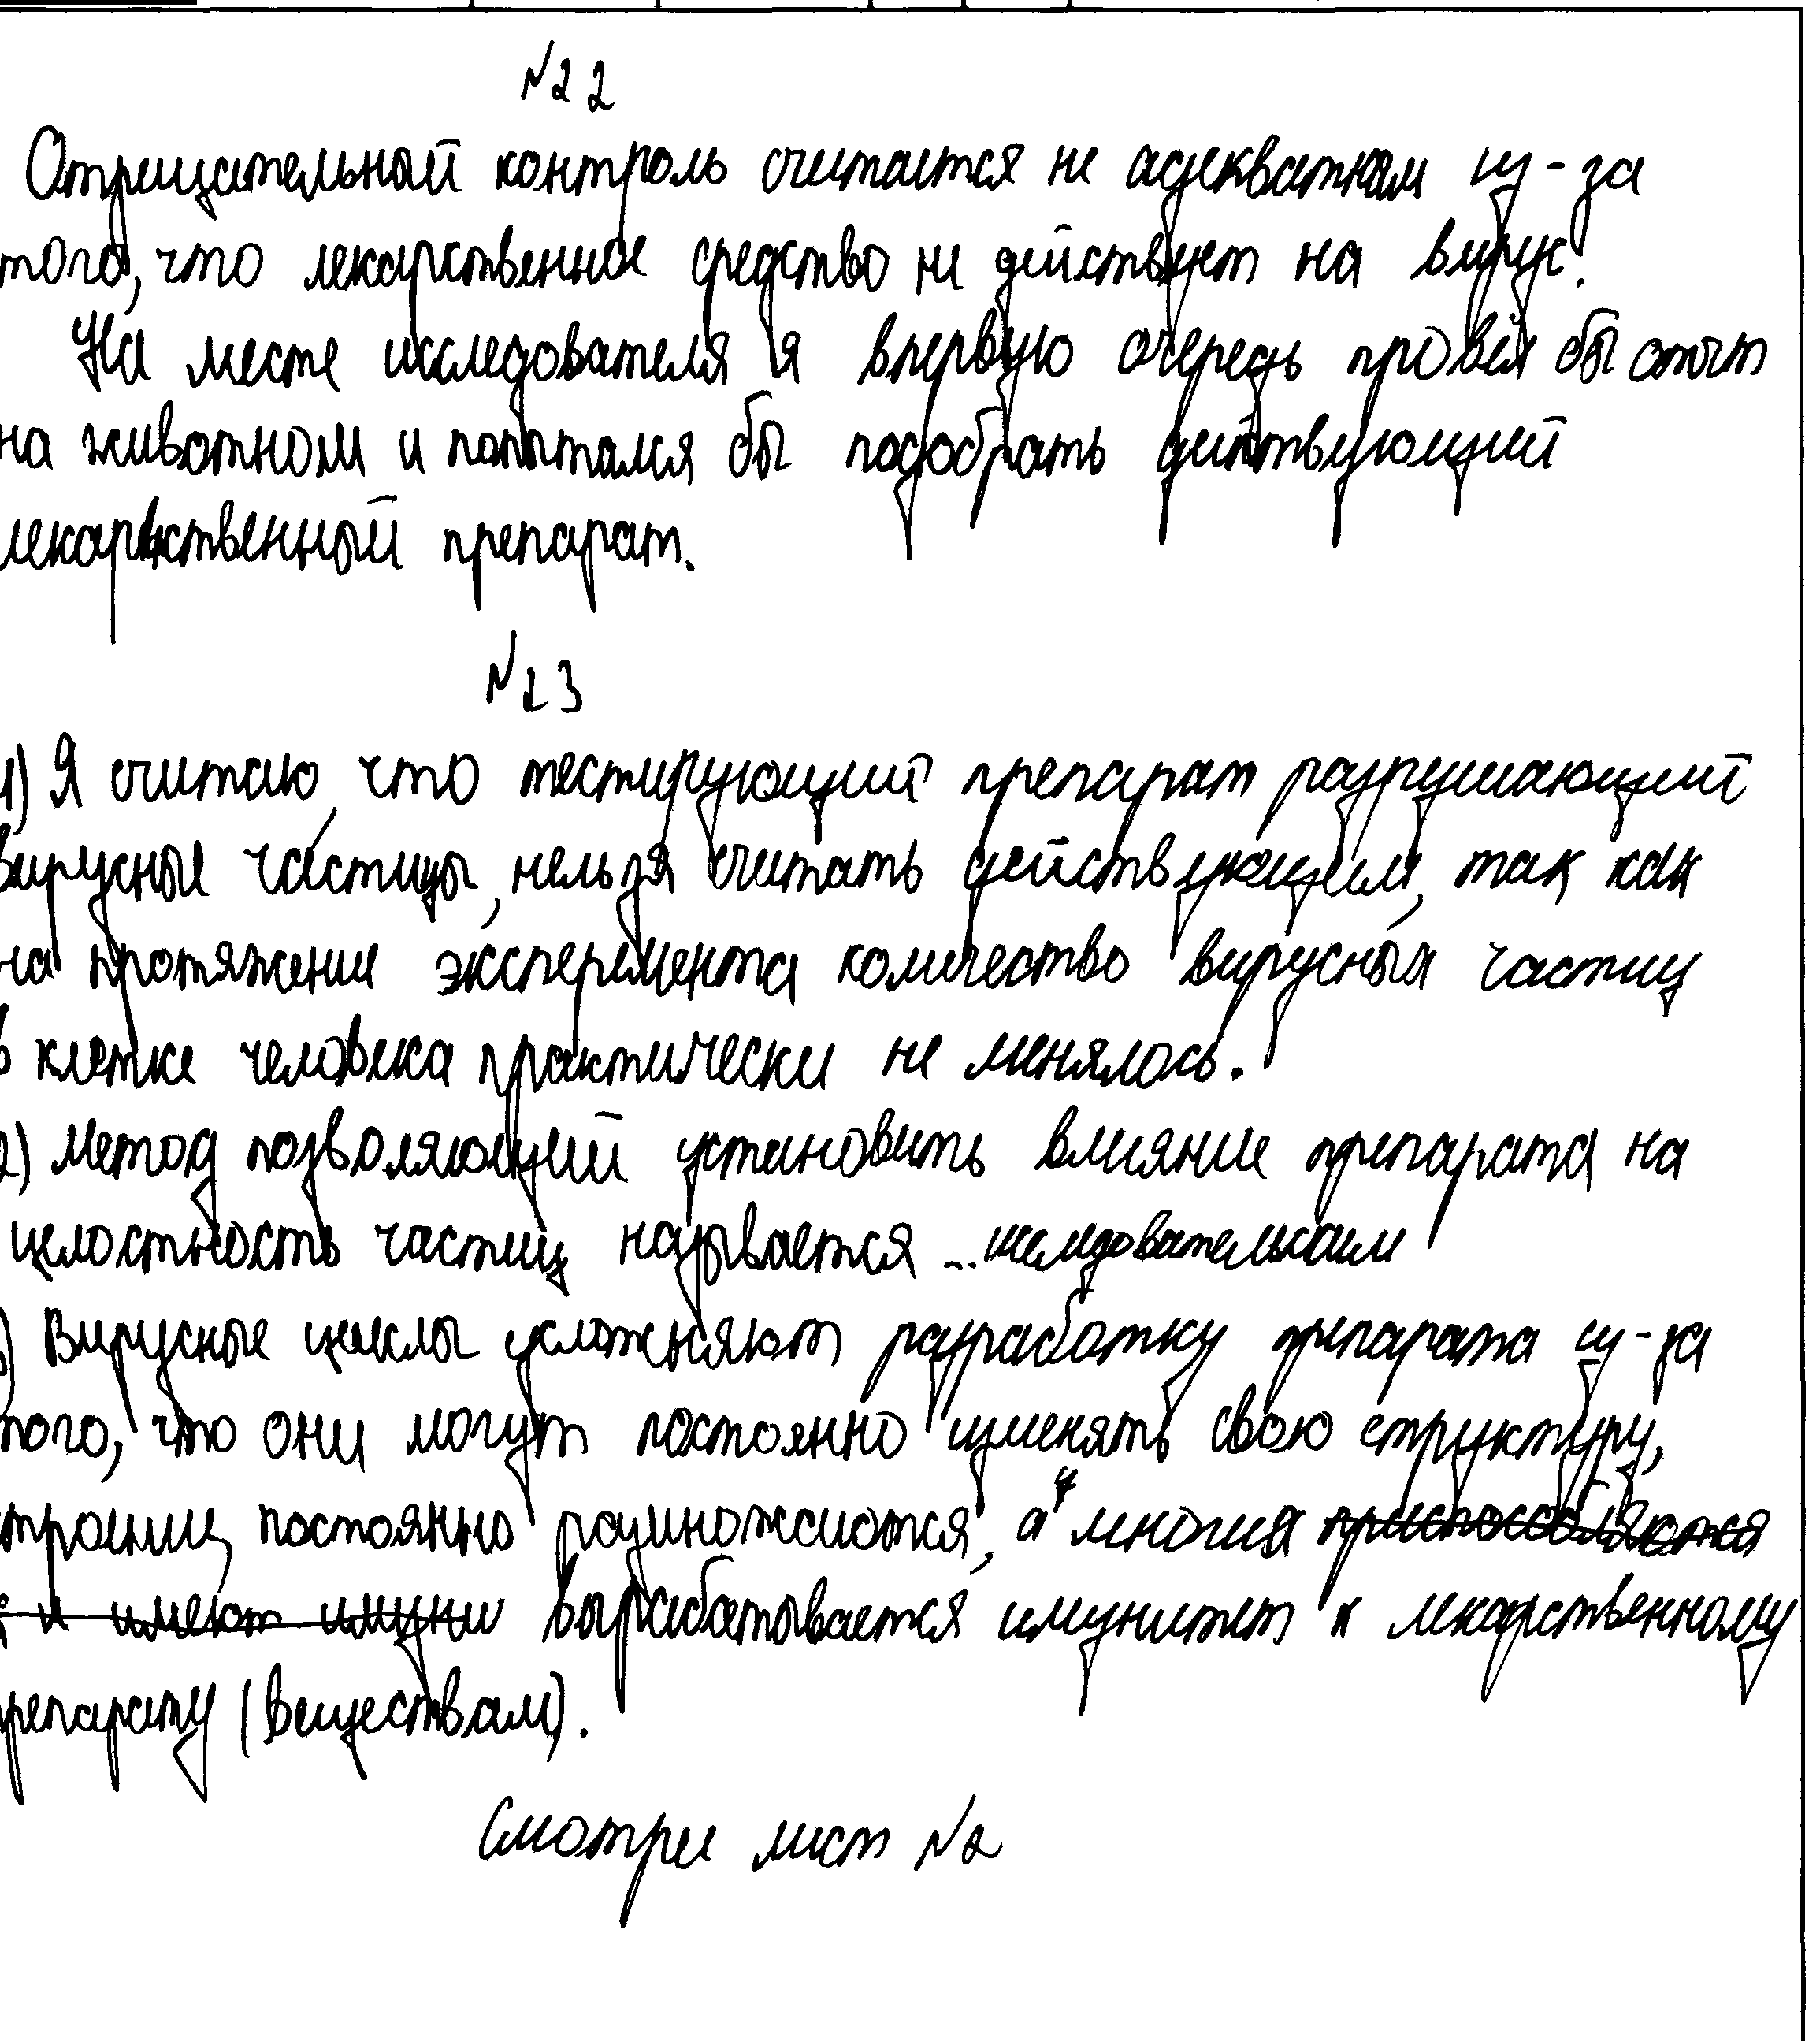 №22
Отрицательный контроль считается не адекватным из-за
того, что лекарственное средство не действует на вирус.
На месте исследователя я впервую очередь провёл бы опыт
на животном и попытался бы подобрать действующий
лекарственный препарат.
№23
1) Я считаю, что тестирующий препарат разрушающий
вирусные частицы, нельзя считать действующем, так как
на протяжении эксперемента количество вирусных частиц
в клетке человека практически не менялось.
2) Метод позволяющий установить влияние препарата на
целостность частиц называется ... исследовательским
) Вирусные циклы усложняют разработку препарата из-за
того, что они могут постоянно изменять свою структуру,
строение, постоянно размножаются, а у многих приспособляются
и имеют имуни вырабатывается имунитет к лекарственному
препарату (веществам).
Смотри лист №2